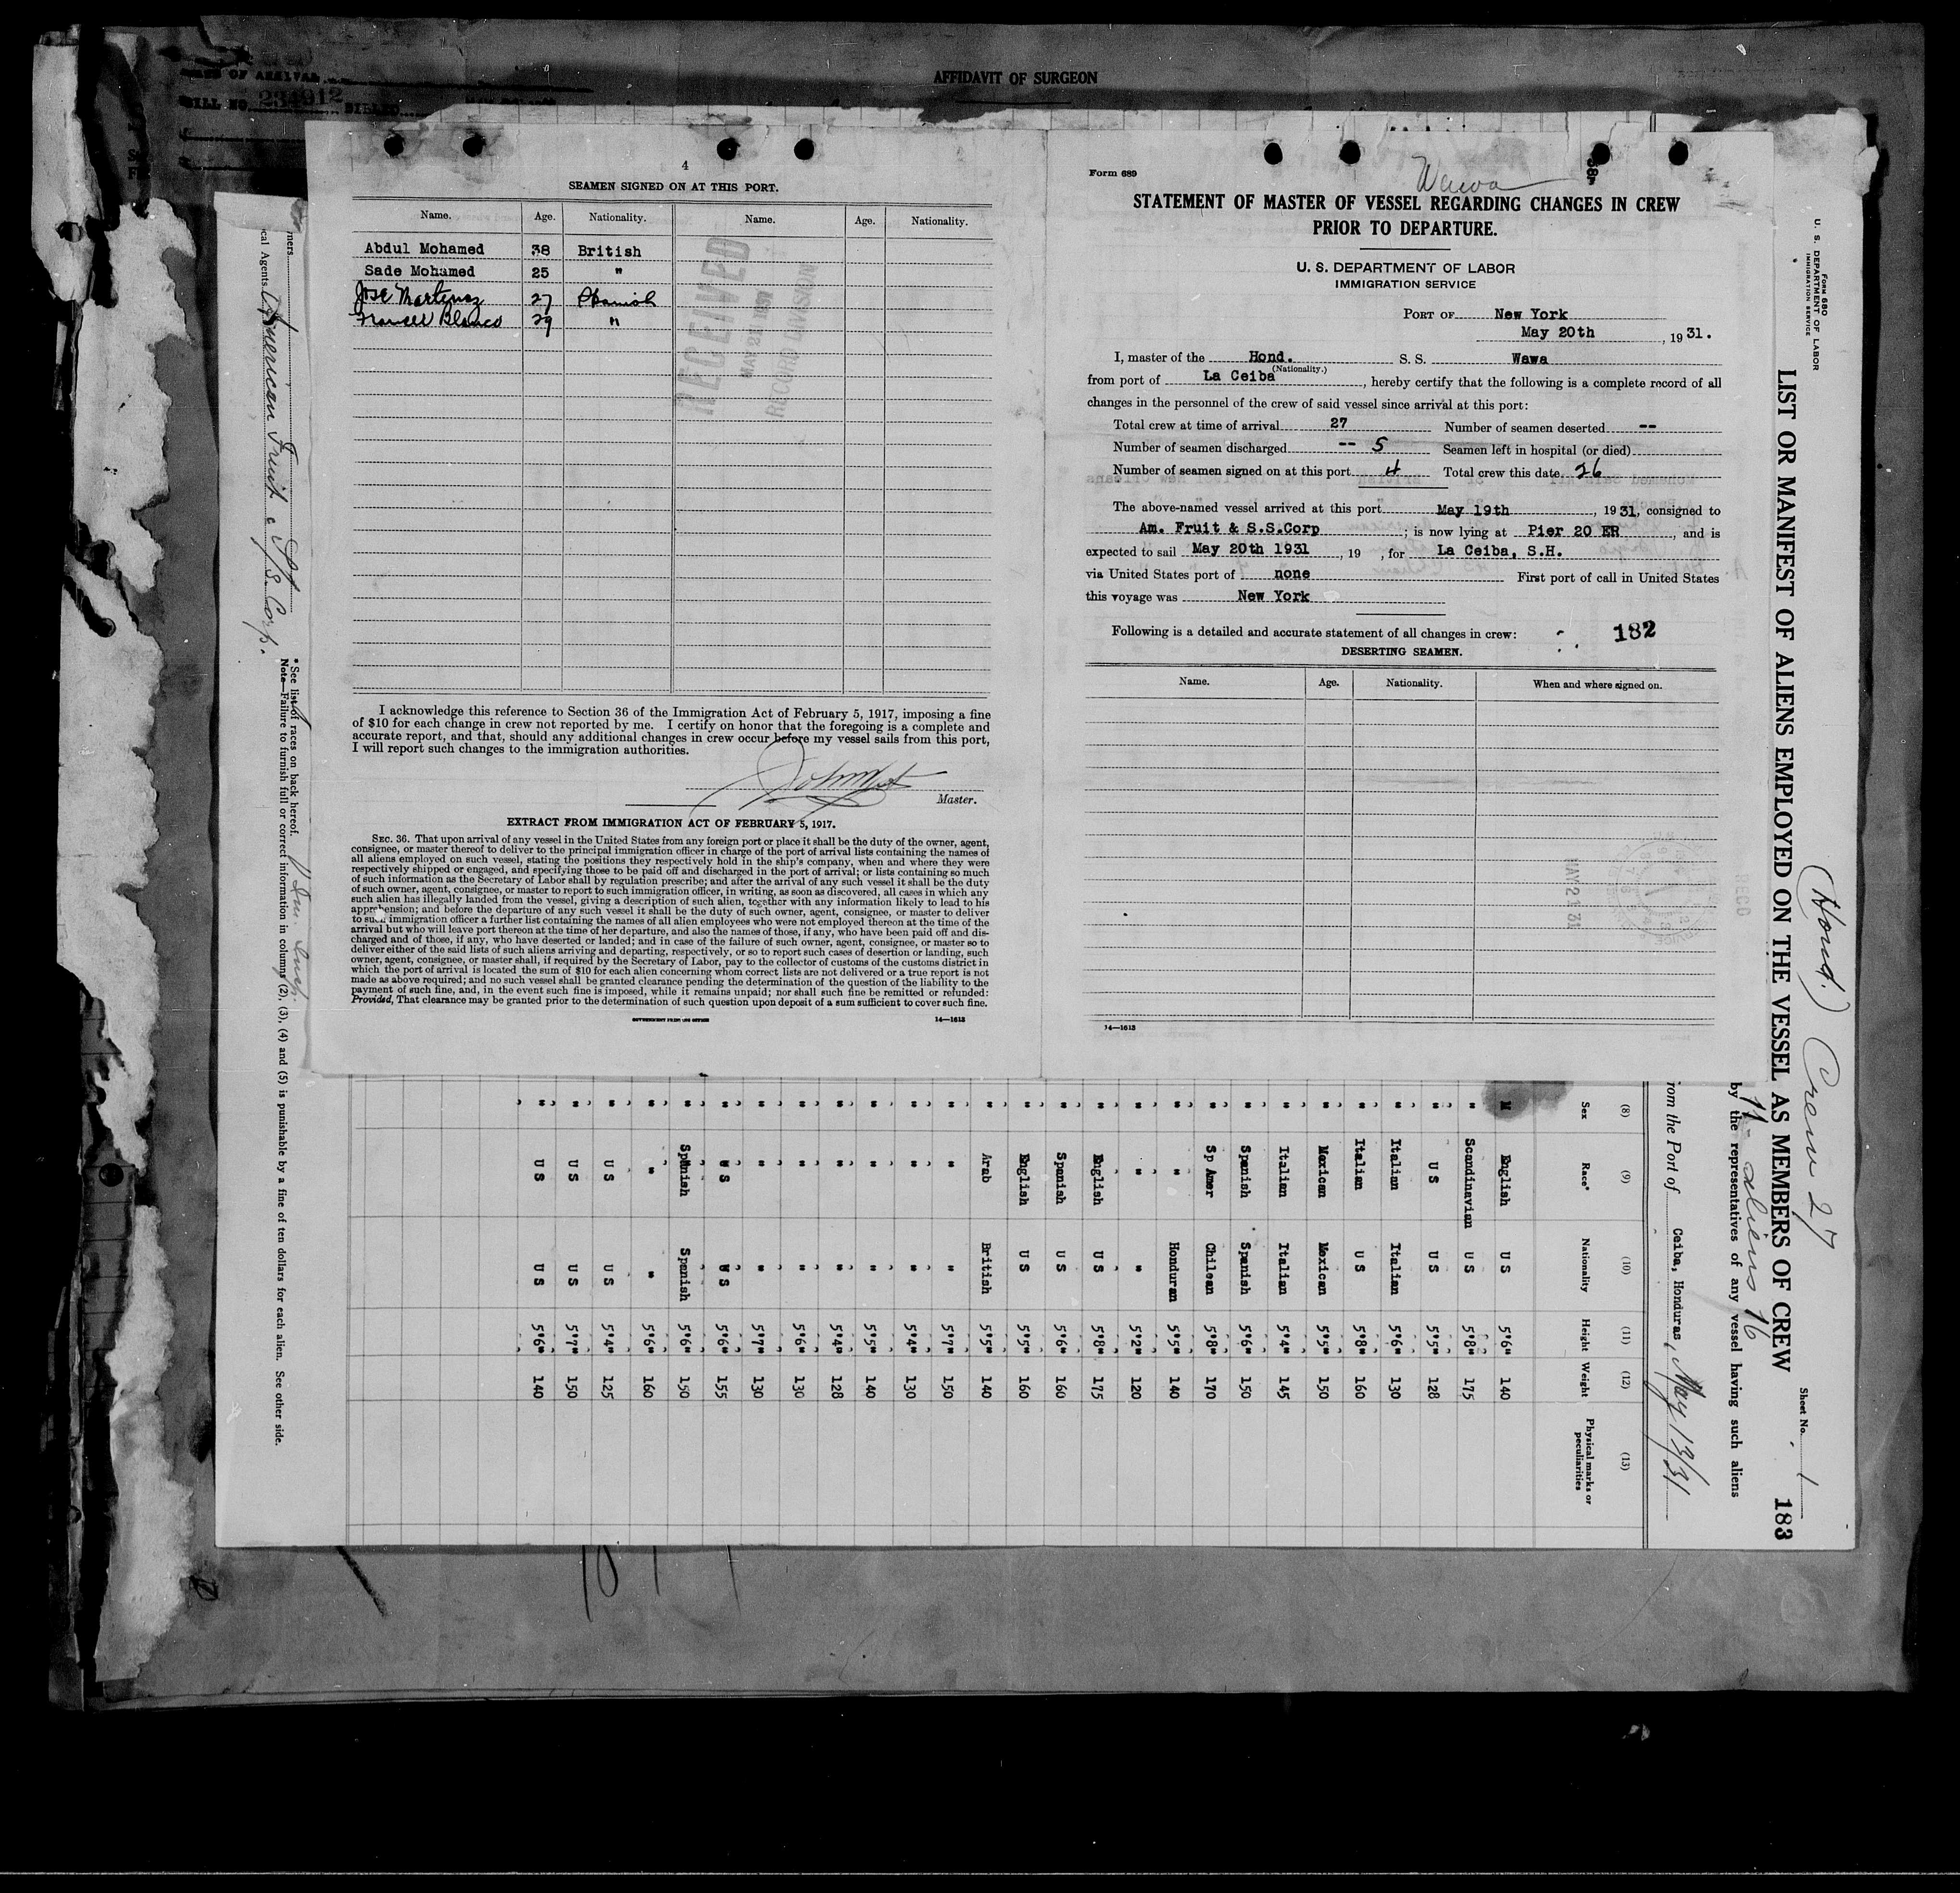 AFFIDAVIT OF SURGEON
BILL NO. 234912 BILLED
4
SEAMEN SIGNED ON AT THIS PORT.
Name. Age. Nationality. Name. Age. Nationality.
Abdul Mohamed 38 British
Sade Mohamed 25 "
Jose Martenez 27 Spanish
Blanco 29 "
RECEIVED
MAY 21 1931
RECORD DIVISION
I acknowledge this reference to Section 36 of the Immigration Act of February 5, 1917, imposing a fine
of $10 for each change in crew not reported by me. I certify on honor that the foregoing is a complete and
accurate report, and that, should any additional changes in crew occur before my vessel sails from this port,
I will report such changes to the immigration authorities.
Master.
EXTRACT FROM IMMIGRATION ACT OF FEBRUARY 5, 1917.
SEC. 36. That upon arrival of any vessel in the United States from any foreign port or place it shall be the duty of the owner, agent,
consignee, or master thereof to deliver to the principal immigration officer in charge of the port of arrival lists containing the names of
all aliens employed on such vessel, stating the positions they respectively hold in the ship's company, when and where they were
respectively shipped or engaged, and specifying those to be paid off and discharged in the port of arrival; or lists containing so much
of such information as the Secretary of Labor shall by regulation prescribe; and after the arrival of any such vessel it shall be the duty
of such owner, agent, consignee, or master to report to such immigration officer, in writing, as soon as discovered, all cases in which any
such alien has illegally landed from the vessel, giving a description of such alien, together with any information likely to lead to his
apprehension; and before the departure of any such vessel it shall be the duty of such owner, agent, consignee, or master to deliver
to such immigration officer a further list containing the names of all alien employees who were not employed thereon at the time of the
arrival but who will leave port thereon at the time of her departure, and also the names of those, if any, who have been paid off and dis-
charged and of those, if any, who have deserted or landed; and in case of the failure of such owner, agent, consignee, or master so to
deliver either of the said lists of such aliens arriving and departing, respectively, or so to report such cases of desertion or landing, such
owner, agent, consignee, or master shall, if required by the Secretary of Labor, pay to the collector of customs of the customs district in
which the port of arrival is located the sum of $10 for each alien concerning whom correct lists are not delivered or a true report is not
made as above required; and no such vessel shall be granted clearance pending the determination of the question of the liability to the
payment of such fine, and, in the event such fine is imposed, while it remains unpaid; nor shall such fine be remitted or refunded:
Provided, That clearance may be granted prior to the determination of such question upon deposit of a sum sufficient to cover such fine.
GOVERNMENT PRINTING OFFICE 14—1613
Form 689
Wawa
STATEMENT OF MASTER OF VESSEL REGARDING CHANGES IN CREW
PRIOR TO DEPARTURE.
U. S. DEPARTMENT OF LABOR
IMMIGRATION SERVICE
PORT OF New York
May 20th, 1931.
I, master of the Hond. S. S. Wawa
(Nationality.)
from port of La Ceiba, hereby certify that the following is a complete record of all
changes in the personnel of the crew of said vessel since arrival at this port:
Total crew at time of arrival 27 Number of seamen deserted --
Number of seamen discharged -- 5 Seamen left in hospital (or died)
Number of seamen signed on at this port 4 Total crew this date 26
The above-named vessel arrived at this port May 19th, 1931, consigned to
Am. Fruit & S.S.Corp; is now lying at Pier 20 ER, and is
expected to sail May 20th 1931, 19 , for La Ceiba, S.H.
via United States port of none First port of call in United States
this voyage was New York
Following is a detailed and accurate statement of all changes in crew: 182
DESERTING SEAMEN.
Name. Age. Nationality. When and where signed on.
MAY 21 31
14—1613
FORM 680
U. S. DEPARTMENT OF LABOR
IMMIGRATION SERVICE
(Hond.) Crew 27
Sheet No. 1
LIST OR MANIFEST OF ALIENS EMPLOYED ON THE VESSEL AS MEMBERS OF CREW
183
11 - aliens 16
by the representatives of any vessel having such aliens
from the Port of Ceiba, Honduras, May 13/31
(8) (9) (10) (11) (12) (13)
Sex Race* Nationality Height Weight Physical marks or peculiarities
M English U S 5'6" 140
" Scandinavian U S 5'8" 175
" U S U S 5'5" 128
" Italian Italian 5'6" 130
" Italian U S 5'8" 160
" Mexican Mexican 5'5" 150
" Italian Italian 5'4" 145
" Spanish Spanish 5'6" 150
" Sp Amer Chilean 5'8" 170
" " Honduran 5'5" 140
" " " 5'2" 120
" English U S 5'8" 175
" Spanish U S 5'6" 160
" English U S 5'5" 160
" Arab British 5'5" 140
" " " 5'7" 150
" " " 5'4" 130
" " " 5'5" 140
" " " 5'4" 128
" " " 5'6" 130
" " " 5'7" 130
" U S U S 5'6" 155
" Spanish Spanish 5'6" 150
" " " 5'6" 160
" U S U S 5'4" 125
" U S U S 5'7" 150
" U S U S 5'6" 140
* See list of races on back hereof.
Note—Failure to furnish full or correct information in columns (2), (3), (4) and (5) is punishable by a fine of ten dollars for each alien. See other side.
Imm. Insp.
American Fruit & S/S. Corp.